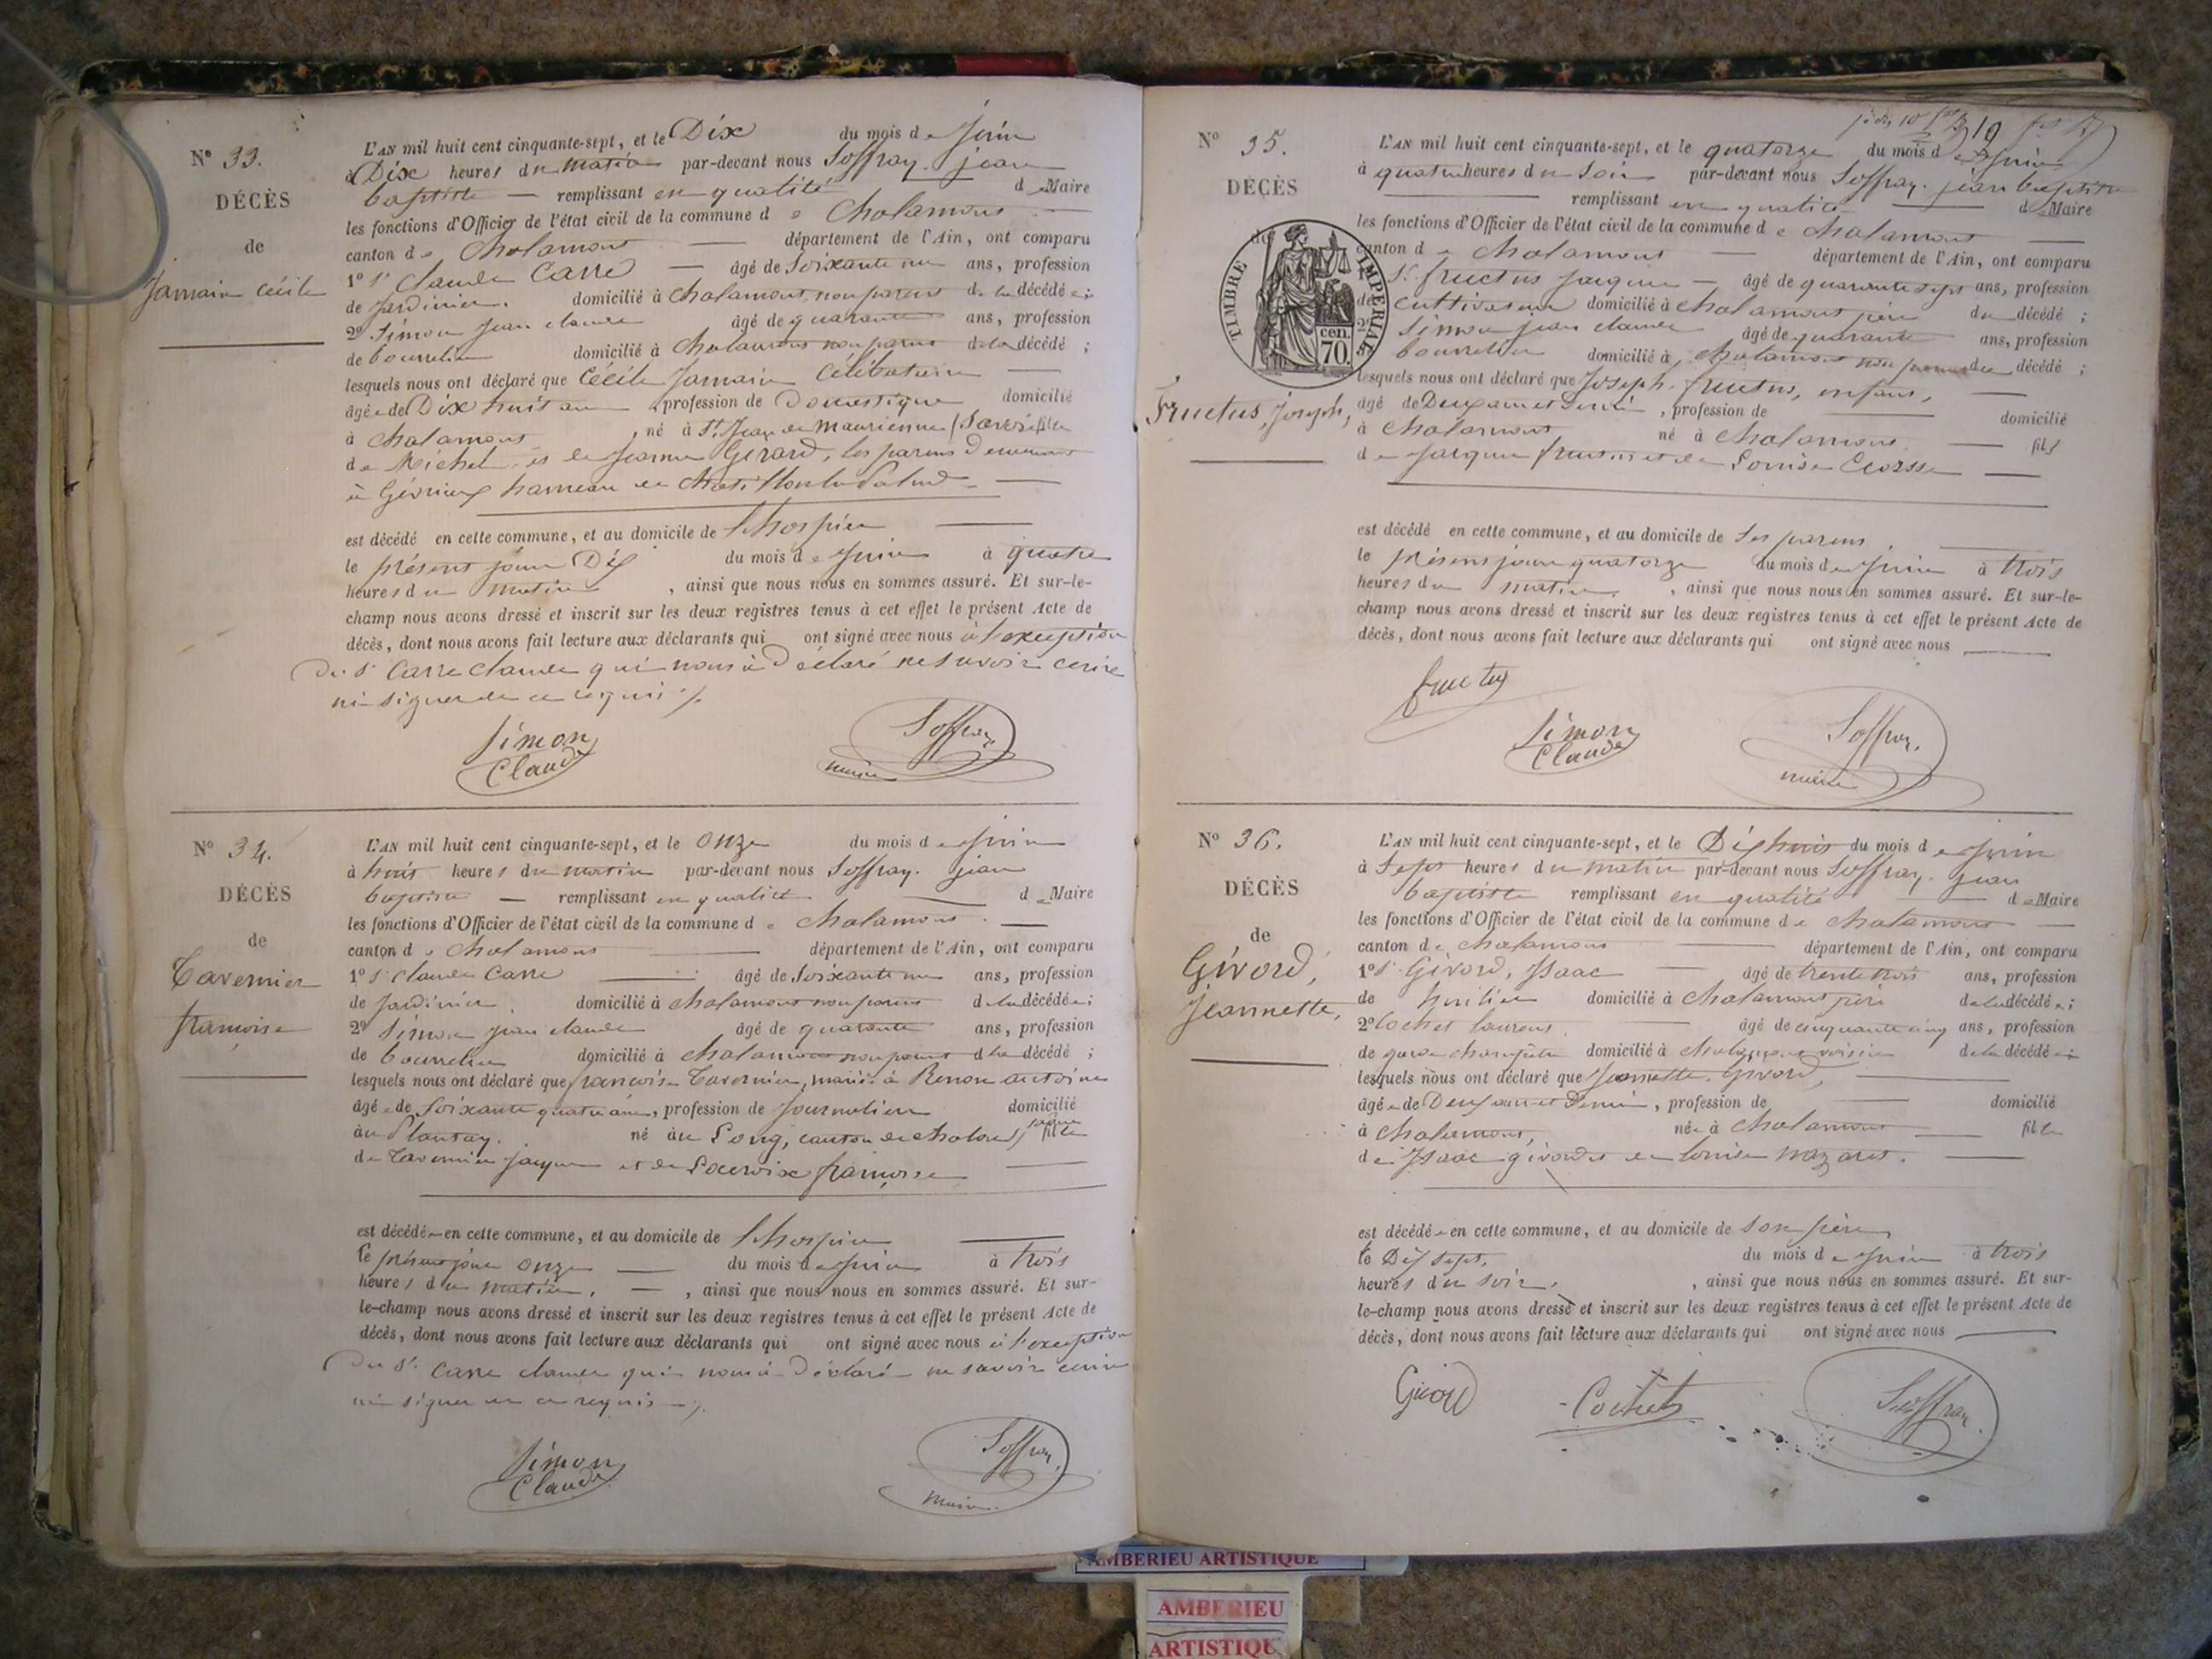 N° 33.
DÉCÈS
de
Jamain Cécile
L'AN mil huit cent cinquante-sept, et le Dix du mois de Juin
à Dix heures du matin par-devant nous Soffray jean
baptiste — remplissant en qualité de Maire
les fonctions d'Officier de l'état civil de la commune de Chalamont
canton de Chalamont département de l'Ain, ont comparu
1° Sr Claude Carre — âgé de soixante un ans, profession
de Jardinier. domicilié à Chalamont, non parent de la décédée;
2° Simon Jean claude âgé de quarante ans, profession
de bourrelier domicilié à Chalamont non parent de la décédé;
lesquels nous ont déclaré que Cécile Jamain Célibataire
âgée de Dix huit ans, profession de Domestique domicilié
à Chalamont, né à St. Jean de Maurienne (Savoie) fille
de Michel et de Jeanne Gerard, les parens Demeurant
à Gévrieux hameau de Chatillon la Palud
est décédé en cette commune, et au domicile de l'hospice
le présent jour Dix du mois de Juin à quatre
heures du matin, ainsi que nous nous en sommes assuré. Et sur-le-
champ nous avons dressé et inscrit sur les deux registres tenus à cet effet le présent Acte de
décès, dont nous avons fait lecture aux déclarants qui ont signé avec nous à l'exception
du Sr Carre Claude qui nous a Déclaré ne savoir écrire
ni signer de ce requis
Simon
Claude
Soffray
maire
N° 34.
DÉCÈS
de
Tavernier
françoise
L'AN mil huit cent cinquante-sept, et le onze du mois de Juin
à huit heures du matin par-devant nous Soffray. jean
baptiste — remplissant en qualité de Maire
les fonctions d'Officier de l'état civil de la commune de Chalamont.
canton de Chalamont département de l'Ain, ont comparu
1° Sr Claude Carre âgé de soixante un ans, profession
de Jardinier domicilié à Chalamont non parent de la décédée;
2° Simon jean claude âgé de quarante ans, profession
de bourrelier domicilié à Chalamont non parent de la décédé;
lesquels nous ont déclaré que françoise Tavernier, mariée à Renon antoine
âgée de soixante quatre ans, profession de Journalière domicilié
au Plantay. né au Long, canton de fille
de Tavernier Jacques et de Lacroix françoise
est décédée en cette commune, et au domicile de l'hospice
le présent jour onze du mois de Juin à trois
heures du matin. — , ainsi que nous nous en sommes assuré. Et sur-
le-champ nous avons dressé et inscrit sur les deux registres tenus à cet effet le présent Acte de
décès, dont nous avons fait lecture aux déclarants qui ont signé avec nous à l'exception
du Sr. Carre claude qui nous a Déclaré ne savoir écrire
ni signer de ce requis
Simon
Claude
Soffray
maire
10
N° 35.
DÉCÈS
de
Fructus, Joseph,
TIMBRE IMPÉRIAL
70 cen
L'AN mil huit cent cinquante-sept, et le quatorze du mois de Juin
à quatre heures du soir par-devant nous Soffray. jean baptiste
remplissant en qualité de Maire
les fonctions d'Officier de l'état civil de la commune de Chalamont
canton de Chalamont département de l'Ain, ont comparu
Sr. fructus Jacques — âgé de quarante sept ans, profession
de cultivateur domicilié à Chalamont père du décédé;
2° Simon jean claude âgé de quarante ans, profession
bourrelier domicilié à Chalamont non parent du décédé;
lesquels nous ont déclaré que Joseph. fructus, enfant,
âgé de Deux ans et Demi, profession de domicilié
à Chalamont né à Chalamont fils
de Jacques fructus et de Louise
est décédé en cette commune, et au domicile de ses parens
le présent jour quatorze du mois de Juin à trois
heures du matin., ainsi que nous nous en sommes assuré. Et sur-le-
champ nous avons dressé et inscrit sur les deux registres tenus à cet effet le présent Acte de
décès, dont nous avons fait lecture aux déclarants qui ont signé avec nous
fructus
Simon
Claude
Soffray.
maire
N° 36.
DÉCÈS
de
Givord,
Jeannette,
L'AN mil huit cent cinquante-sept, et le Dix huit du mois de Juin
à Sept heures du matin par-devant nous Soffray. jean
baptiste remplissant en qualité de Maire
les fonctions d'Officier de l'état civil de la commune de Chalamont
canton de Chalamont département de l'Ain, ont comparu
1° Sr Givord, Isaac — âgé de trente trois ans, profession
de huilier domicilié à Chalamont père de la décédée;
2° Cochet Laurent âgé de cinquante cinq ans, profession
de garde champêtre domicilié à Chalamont voisin de la décédée;
lesquels nous ont déclaré que Jeannette. Givord,
âgée de Deux ans et Demi, profession de domicilié
à Chalamont, née à Chalamont fille
de Isaac givord et de Louise nazaret.
est décédée en cette commune, et au domicile de son père
le Dix sept, du mois de Juin à trois
heures du soir., ainsi que nous nous en sommes assuré. Et sur-
le-champ nous avons dressé et inscrit sur les deux registres tenus à cet effet le présent Acte de
décès, dont nous avons fait lecture aux déclarants qui ont signé avec nous
Givord
Cochet
Soffray
AMBERIEU ARTISTIQUE
AMBERIEU
ARTISTIQU